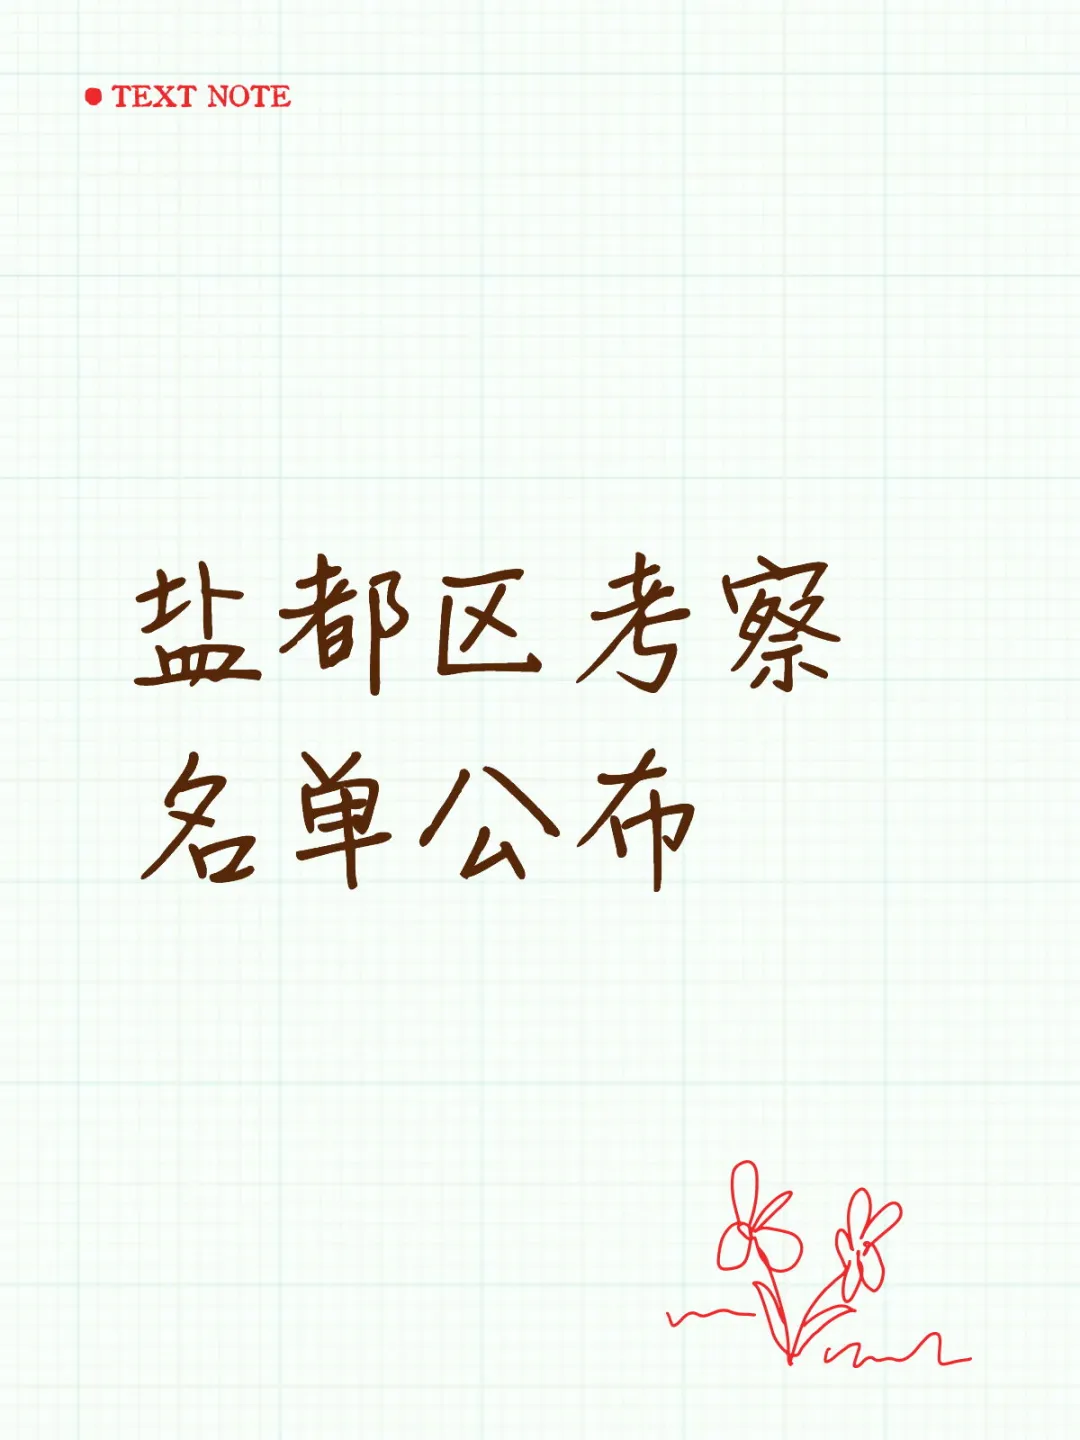 TEXT NOTE
盐都区考察
名单公布